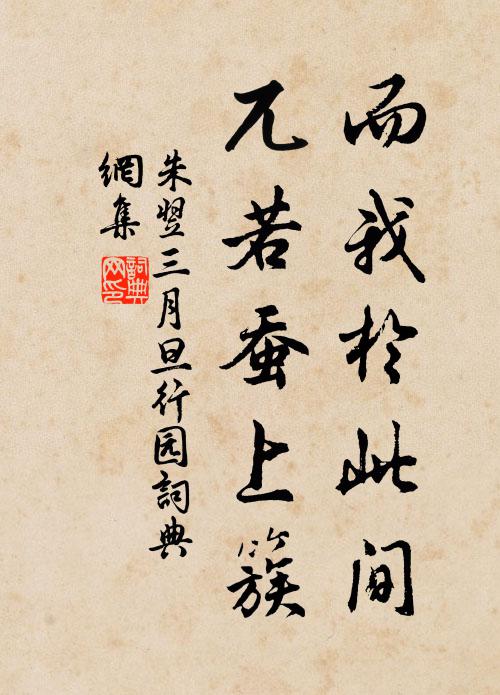 而我於此间
兀若蚕上簇
朱翌三月旦行园詞典
網集
詞典
网印